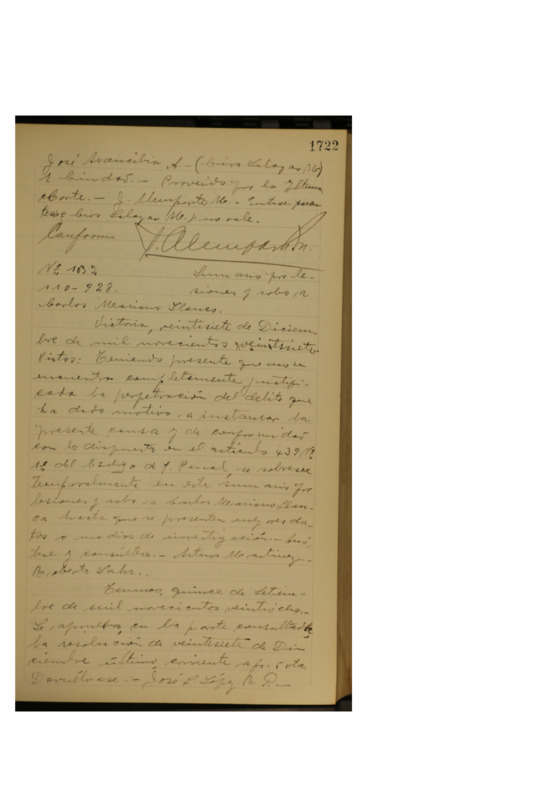 1722
José Arancibia A.- (Ciro Salazar M)
Ciudad.- Proveido por la Iltma
Corte.- J. Alemparte M.- Entre paren
tesis Ciro Salazar M, no vale.
Conforme J. Alemparte M.
Nº 1032
110-928.
Sumario por le-
siones y robo, a
Carlos Mariano Llanca.
Victoria, veintisiete de Diciem-
bre de mil novecientos veintisiete.
Vistos: Teniendo presente que no se
encuentra completamente justifi-
cada la perpetración del delito que
ha dado motivo a instaurar la
presente causa y de conformidad
con lo dispuesto en el artículo 439 Nº
1º del Código de P. Penal, se sobresee
temporalmente en este sumario por
lesiones y robo a Carlos Mariano Llan-
ca hasta que se presenten mejores da-
tos o medios de investigación.- Anó-
tese y consúltese.- Arturo Martinez.-
Roberto Lahr..
Temuco, quince de Setiem-
bre de mil novecientos veintiocho.-
Se aprueba, en la parte consultada,
la resolución de veintisiete de Di-
ciembre último, corriente a fs. 5 vta
Devuélvase.- José L López R. P.-